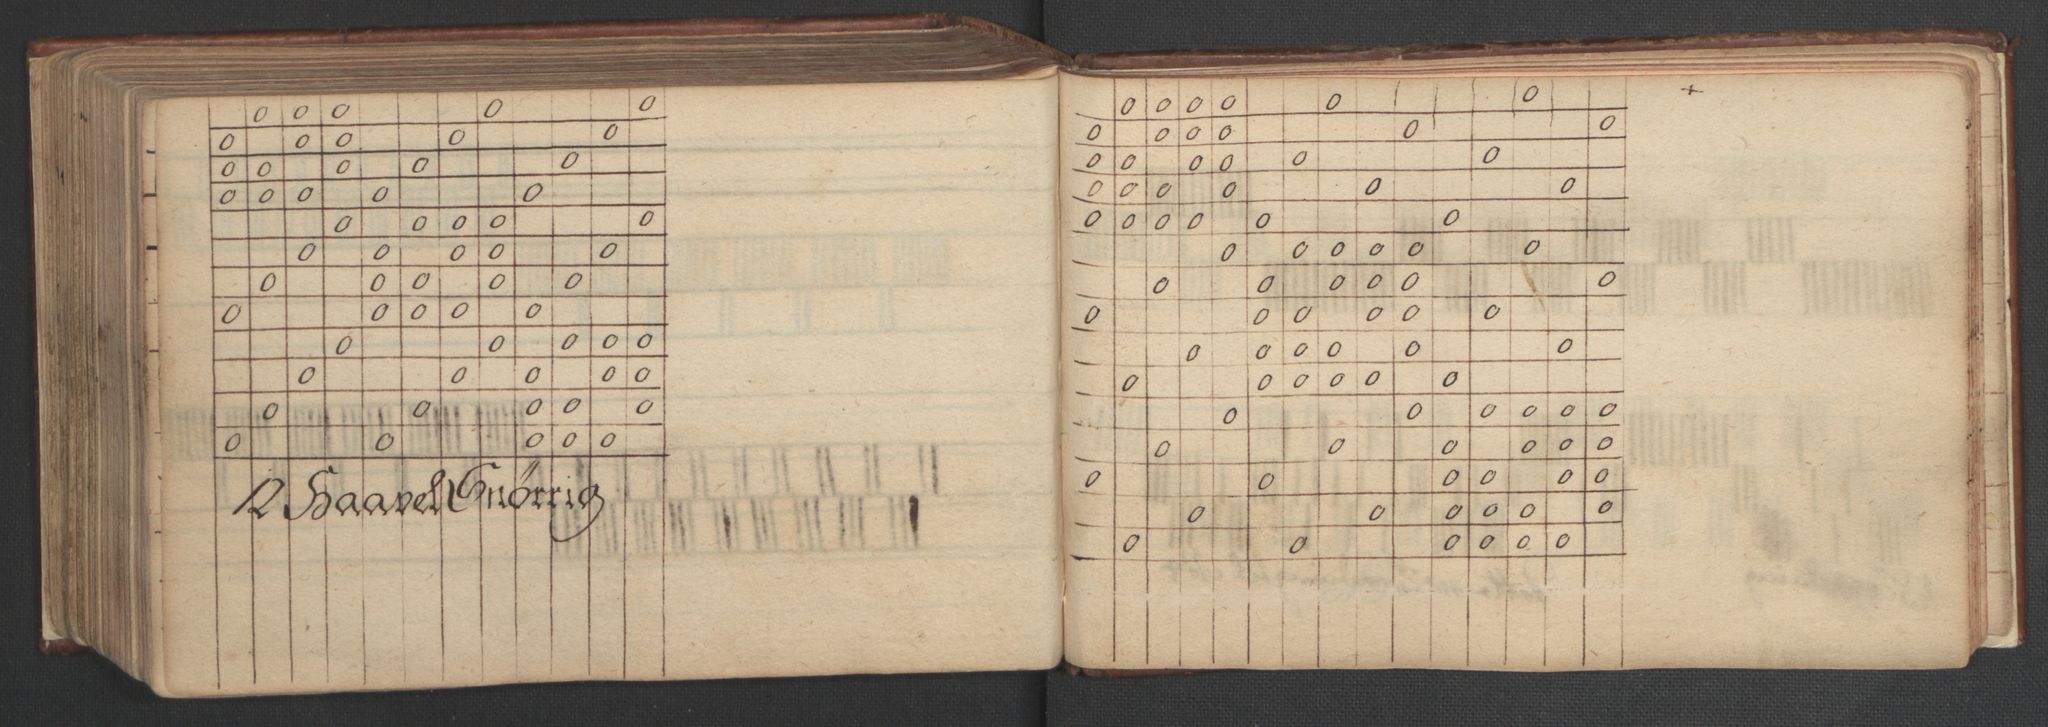 12 Haavel Snörrig